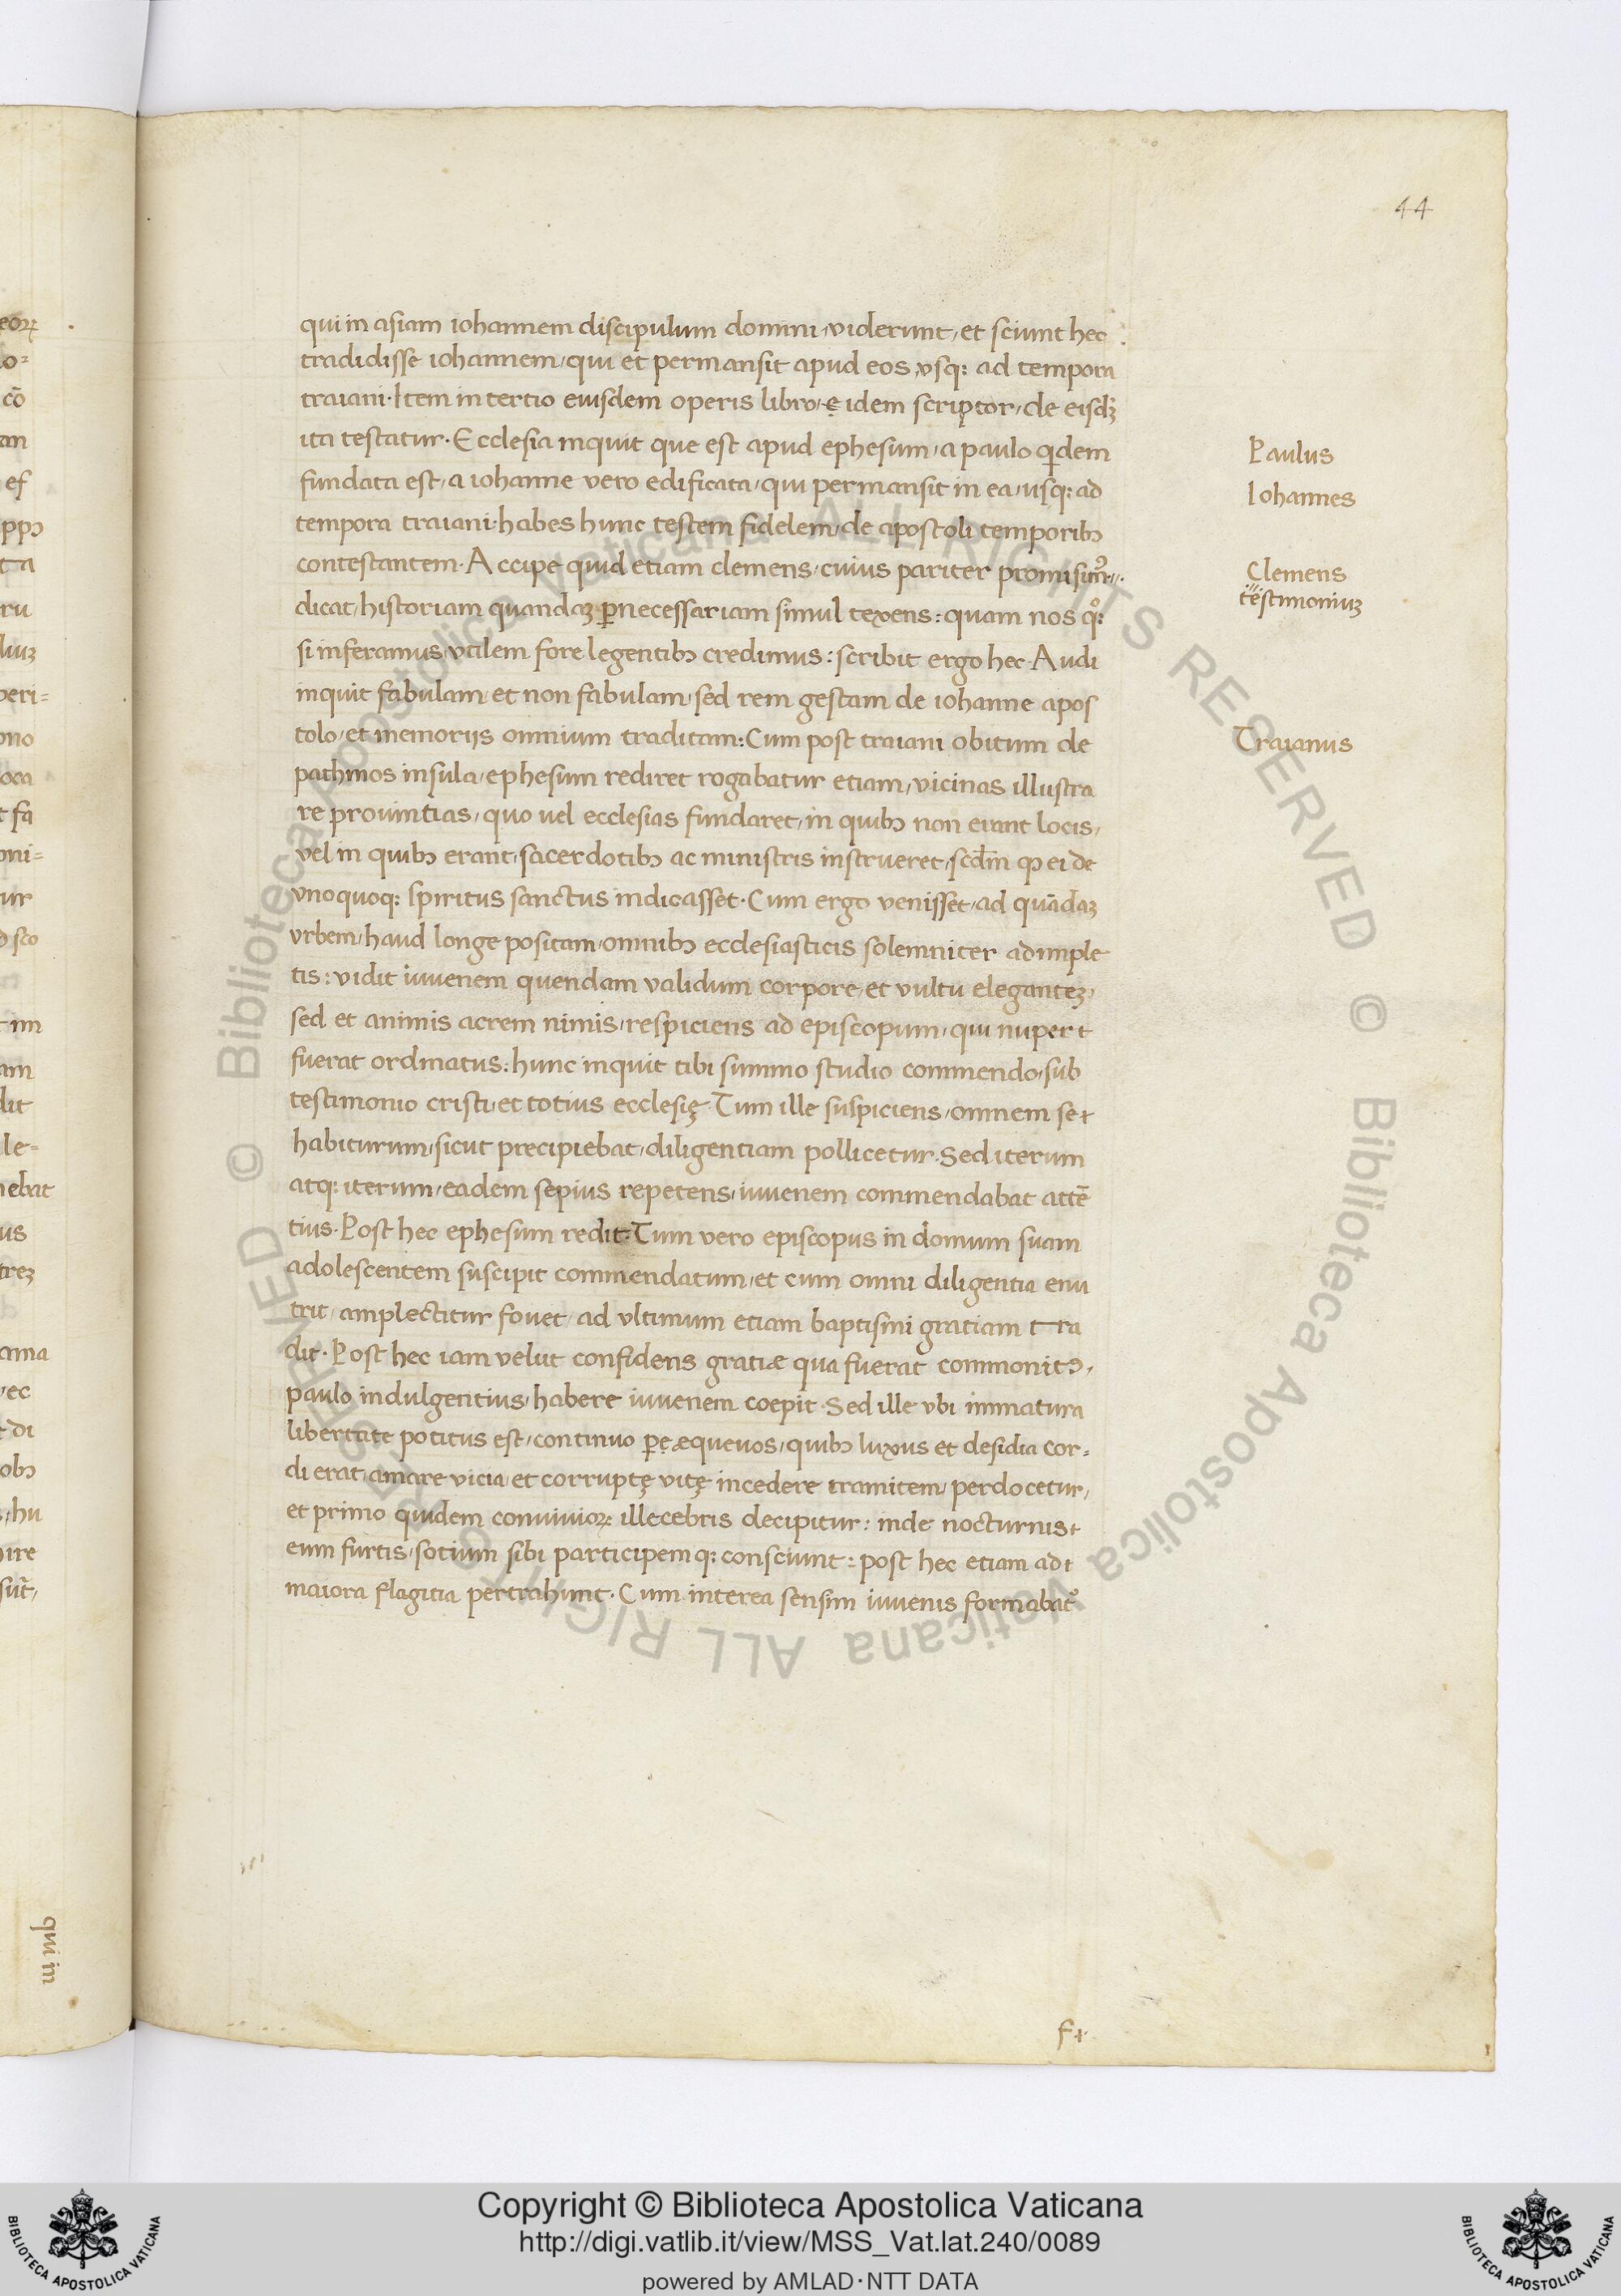 44
qui in asiam iohannem discipulum domini, viderunt, et sciunt hec
tradidisse iohannem, qui et permansit apud eos, vsq; ad tempora
traiani. Item in tertio eiusdem operis libro, ę idem scriptor, de eisdꝫ
ita testatur. Ecclesia inquit que est apud ephesum, a paulo qͥdem
fundata est, a iohanne vero edificata, qui permansit in ea, usq; ad
tempora traiani. habes hunc testem fidelem, de apostoli temporibꝰ
contestantem. Accipe quid etiam clemens, cuius pariter promisimꝰ
dicat, historiam quandaꝫ ꝑnecessariam simul texens: quam nos qͦ;
si inferamus, vtilem fore legentibꝰ credimus: scribit ergo hec. Audi
inquit fabulam, et non fabulam, sed rem gestam de iohanne apos
tolo, et memoriis omnium traditam: Cum post traiani obitum de
pathmos insula, ephesum rediret rogabatur etiam, vicinas illustra
re prouintias, quo uel ecclesias fundaret, in quibꝰ non erant locis,
vel in quibꝰ erant, sacerdotibꝰ ac ministris instrueret, scdm̄ ꝙ ei de
vnoquoq; spiritus sanctus indicasset. Cum ergo venisset, ad quādaꝫ
vrbem, haud longe positam, omnibꝰ ecclesiasticis solemniter adimple
tis: vidit iuuenem quendam validum corpore, et vultu eleganteꝫ,
sed et animis acrem nimis, respiciens ad episcopum, qui nuper
fuerat ordinatus: hunc inquit tibi summo studio commendo, sub
testimonio cristi, et totius ecclesię. Tum ille suspiciens, omnem se
habiturum, sicut precipiebat, diligentiam pollicetur. Sed iterum
atq; iterum, eadem sepius repetens, iuuenem commendabat attē
tius. Post hec ephesum redit. Tum vero episcopus in domum suam
adolescentem suscipit commendatum, et cum omni diligentia enu
trit, amplectitur fouet, ad vltimum etiam baptismi gratiam tra
dit. Post hec iam velut confidens gratiæ qua fuerat commonitꝰ,
paulo indulgentius, habere iuuenem coepit. Sed ille vbi immatura
libertate potitus est, continuo ꝑ equevos, quibꝰ luxus et desidia cor=
di erat, amare vicia, et corruptę vitę incedere tramitem, perdocetur,
et primo quidem conuiuioꝝ illecebris decipitur: inde nocturnis
eum furtis, sotium sibi participemq; consciunt: post hec etiam ad
maiora flagitia pertrahunt. Cum interea sensim iuuenis formabatᷣ
Paulus
Iohannes
Clemens
testimoniuꝫ
Traianus
qui in
Copyright © Biblioteca Apostolica Vaticana
http://digi.vatlib.it/view/MSS_Vat.lat.240/0089
powered by AMLAD·NTT DATA
BIBLIOTECA APOSTOLICA VATICANA
BIBLIOTECA APOSTOLICA VATICANA
© Biblioteca Apostolica Vaticana ALL RIGHTS RESERVED © Biblioteca Apostolica Vaticana ALL RIGHTS RESERVED